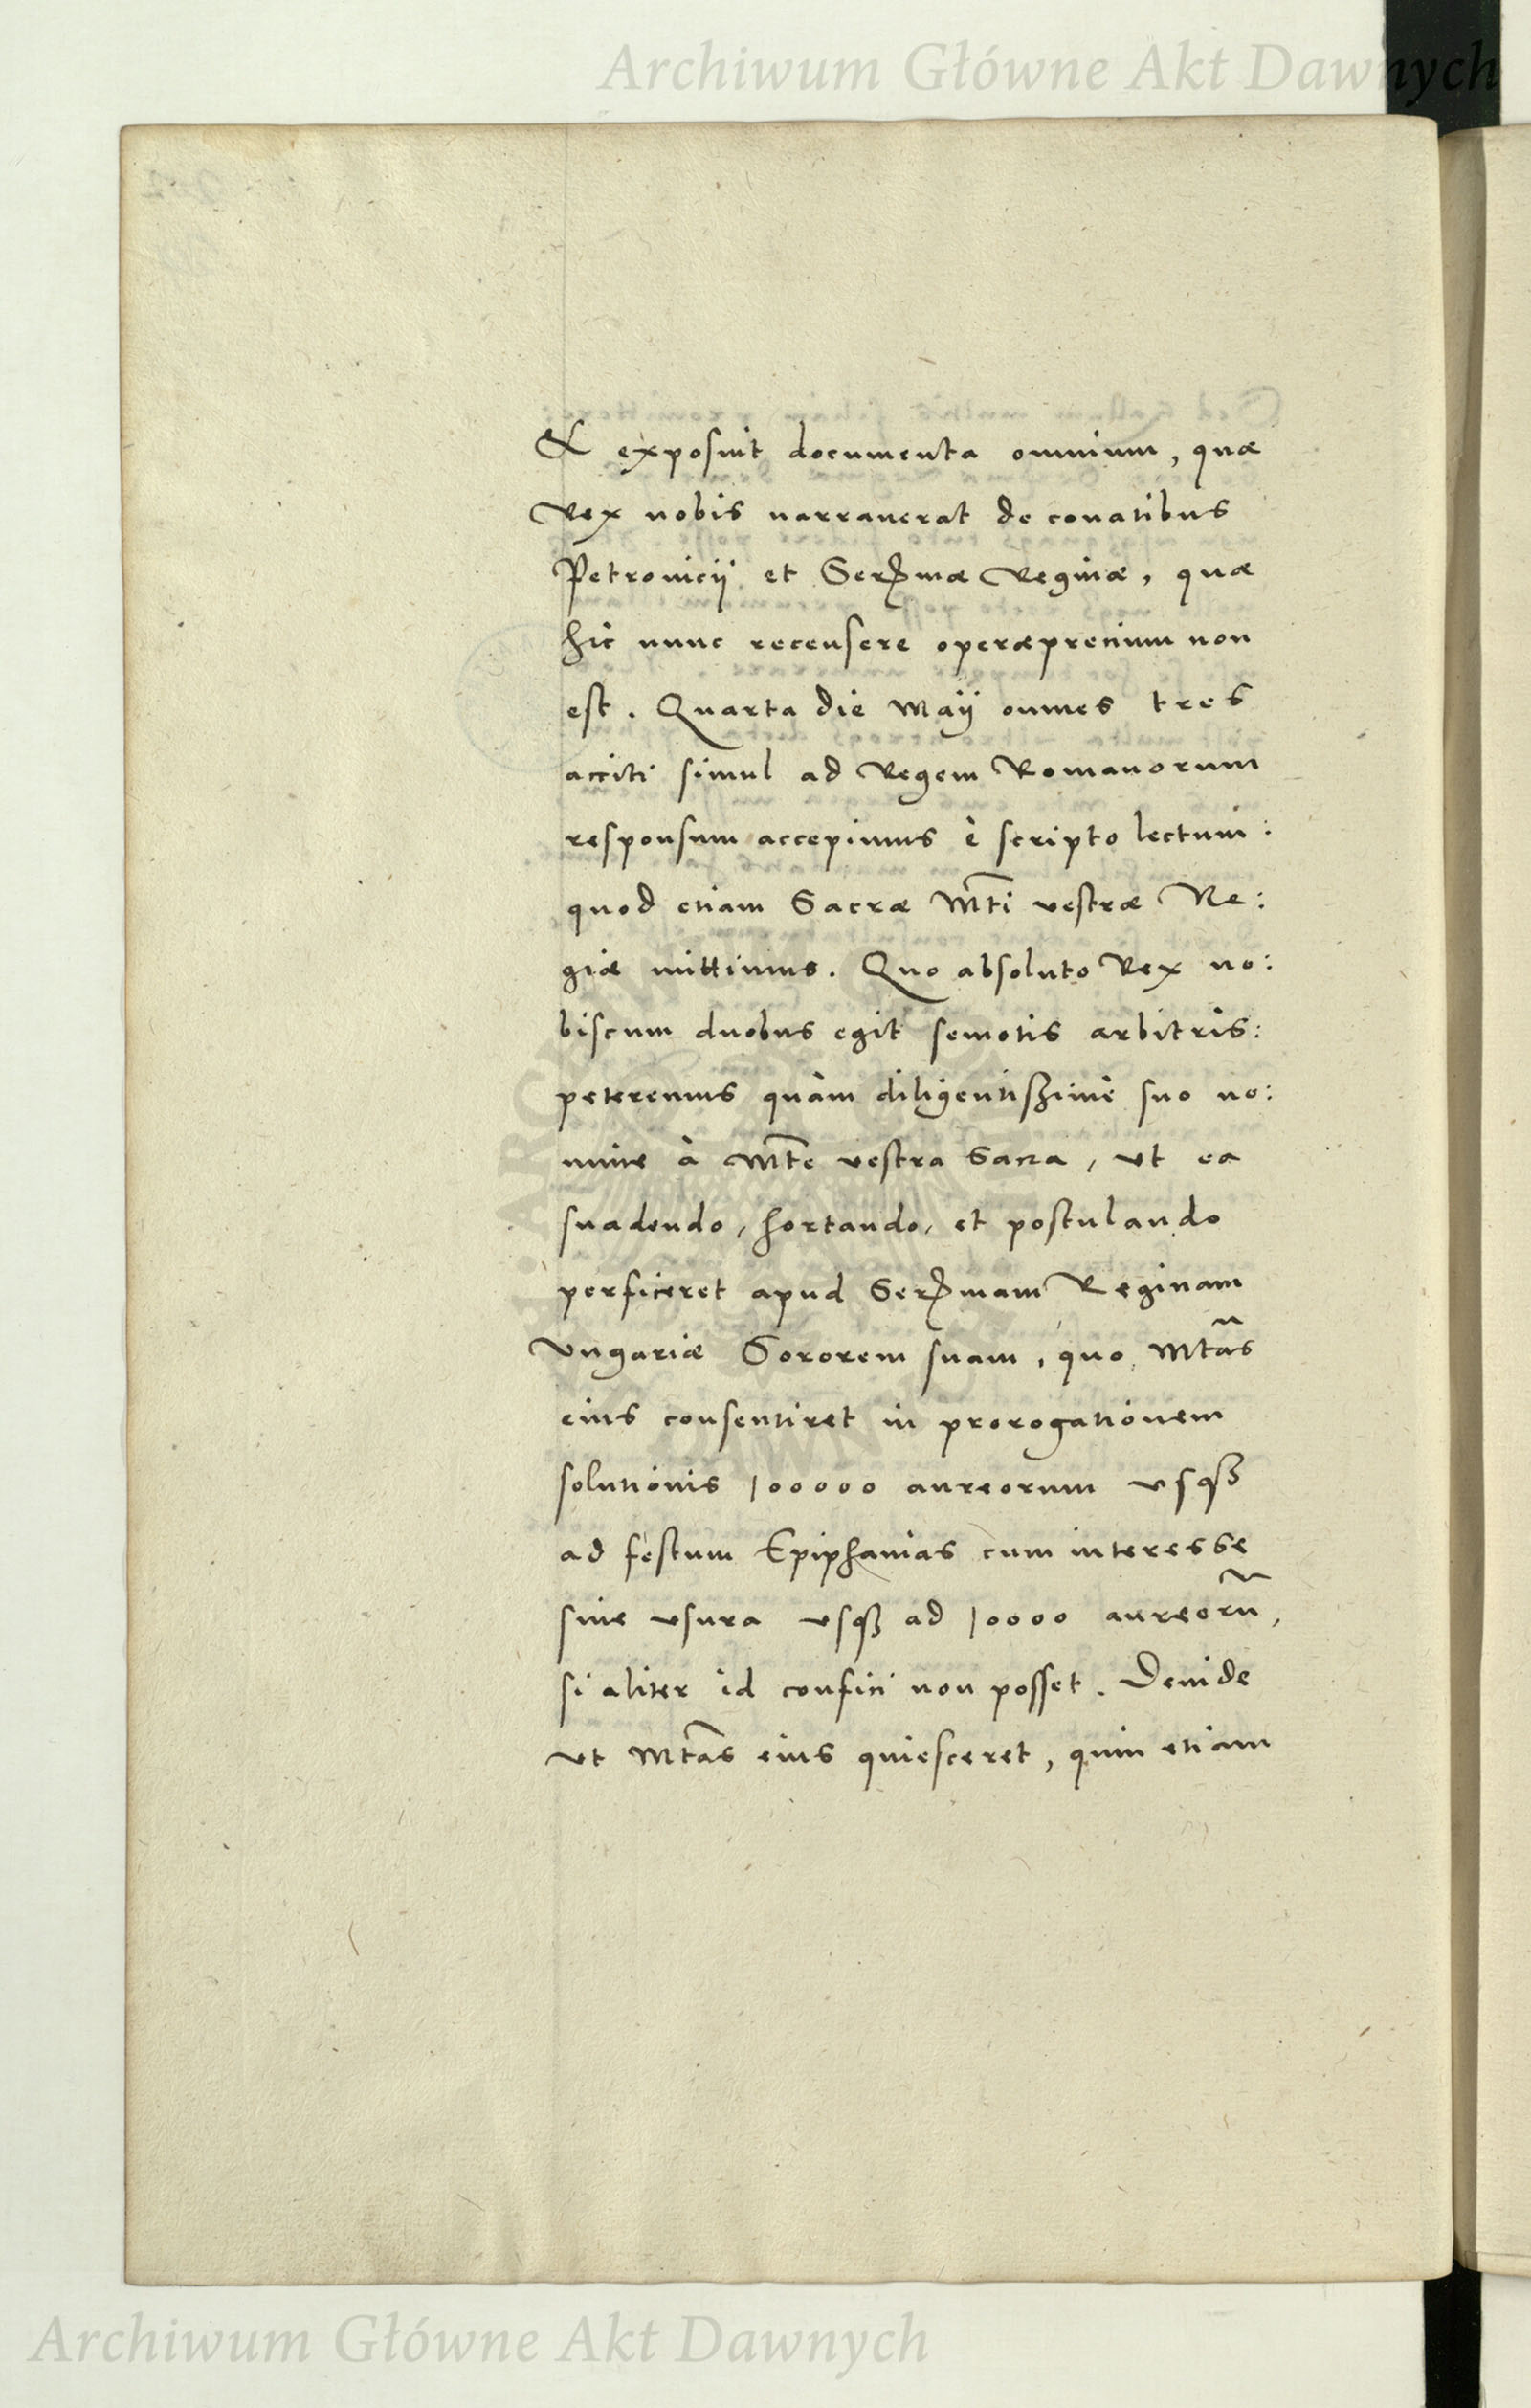 Archiwum Główne Akt Dawnych
& exposuit documenta omnium, quæ
Rex nobis narrauerat de conatibus
Petrouicij et Serꝫmæ Reginæ, quæ
hic nunc recensere operæprecium non
est. Quarta die Maij omnes tres
acciti simul ad Regem Romanorum
responsum accepimus è scripto lectum:
quod etiam Sacræ Mti vestræ Re:
giæ mittimus. Quo absoluto Rex no:
biscum duobus egit semotis arbitris:
peteremus quàm diligentissimè suo no:
mine à Mte vestra Sacra, vt ea
suadendo, hortando, et postulando
perficeret apud Serꝫmam Reginam
Vngariæ Sororem suam, quo Mtas
eius consentiret in prorogationem
solutionis 100000 aureorum vsqꝫ
ad festum Epiphanias cum interesse
siue vsura vsqꝫ ad 10000 aureorũ,
si aliter id confici non posset. Deinde
vt Mtas eius quiesceret, quin etiam
Archiwum Główne Akt Dawnych